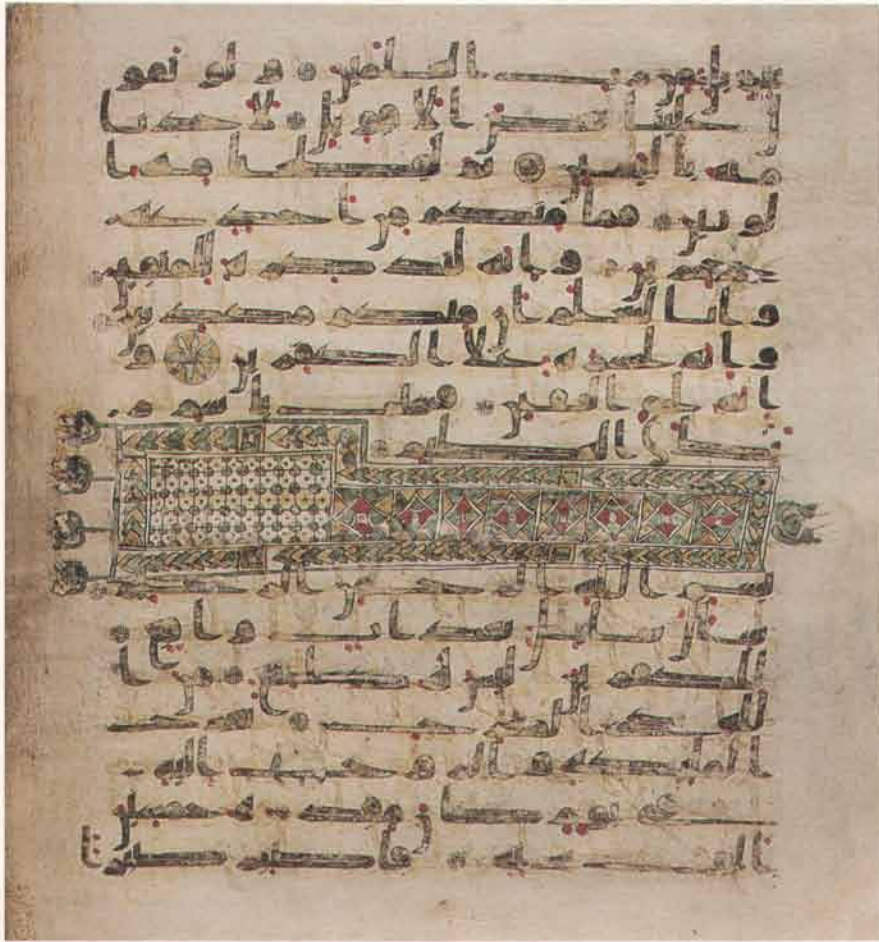 تنزيل من رب العلمين ولو تقو
ل علينا بعض الاقويل لاخذنا
منه باليمين ثم لقطعنا منه ا
لوتين فما منكم من احد عنه
حجزين وانه لتذكرة للمتقين
وانا لنعلم ان منكم مكذبين
وانه لحسرة على الكفرين و
انه لحق اليقين فسبح باسم ر
بك العظيم
بسم الله الرحمن الرحيم
سال سايل بعذاب واقع
للكفرين ليس له دافع من ا
لله ذي المعارج تعرج
الملئكة والروح اليه
في يوم كان مقداره خمسين
الف سنة فاصبر صبرا